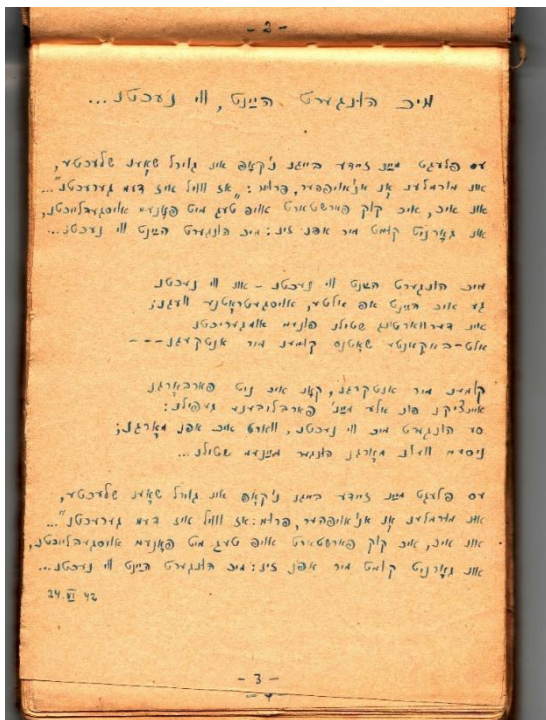 - 2 -
מיך הונגערט הײַנט, ווי נעכטן...
עס פלעגט מײַן זיידע בייגן ני'קאָפּ אין גורל שאָען שלעכטע,
און מורמלען אָן אויפהער, פרום: „אַז וווּיל איז דעם גערעכטן"...
און איך, איך קוק פאַרשטאַרט אויפ טעג מיט פּאָנעם אויסגעבלייכטן,
און גאָרניט קומט מיר אפן זינ: מיך הונגערט הײַנט ווי נעכטן...
מיך הונגערט הײַנט ווי נעכטן – און ווי נעכטן
גיי איך הײַנט אפ אלטע, אויסגעטראָטענע וועגן;
אין דערוואַרטונג שטילן פונעם אומגעריכטן
אלט-באַקאַנטע שאָטנס קומען מיר אנטקעגן---
קומען מיר אנטקעגן, קאָן איך ניט פאַרבאָרגן
איינציקן פון אלע מײַנ' פאַרבליבענע געפילן:
סע הונגערט מיך ווי נעכטן, וואַרט איך אפן מאָרגן;
ניסים וועלן מאָרגן הונגער מײַנעם שטילן...
עס פלעגט מײַן זיידע בייגן ני'קאָפּ אין גורל שאָען שלעכטע,
און מורמלען אָן אויפהער, פרום: „אַז וווּיל איז דעם גערעכטן"...
און איך, איך קוק פאַרשטאַרט אויפ טעג מיט פּאָנעם אויסגעבלייכטן,
און גאָרניט קומט מיר אפן זינ: מיך הונגערט הײַנט ווי נעכטן...
24.VI 42
- 3 -